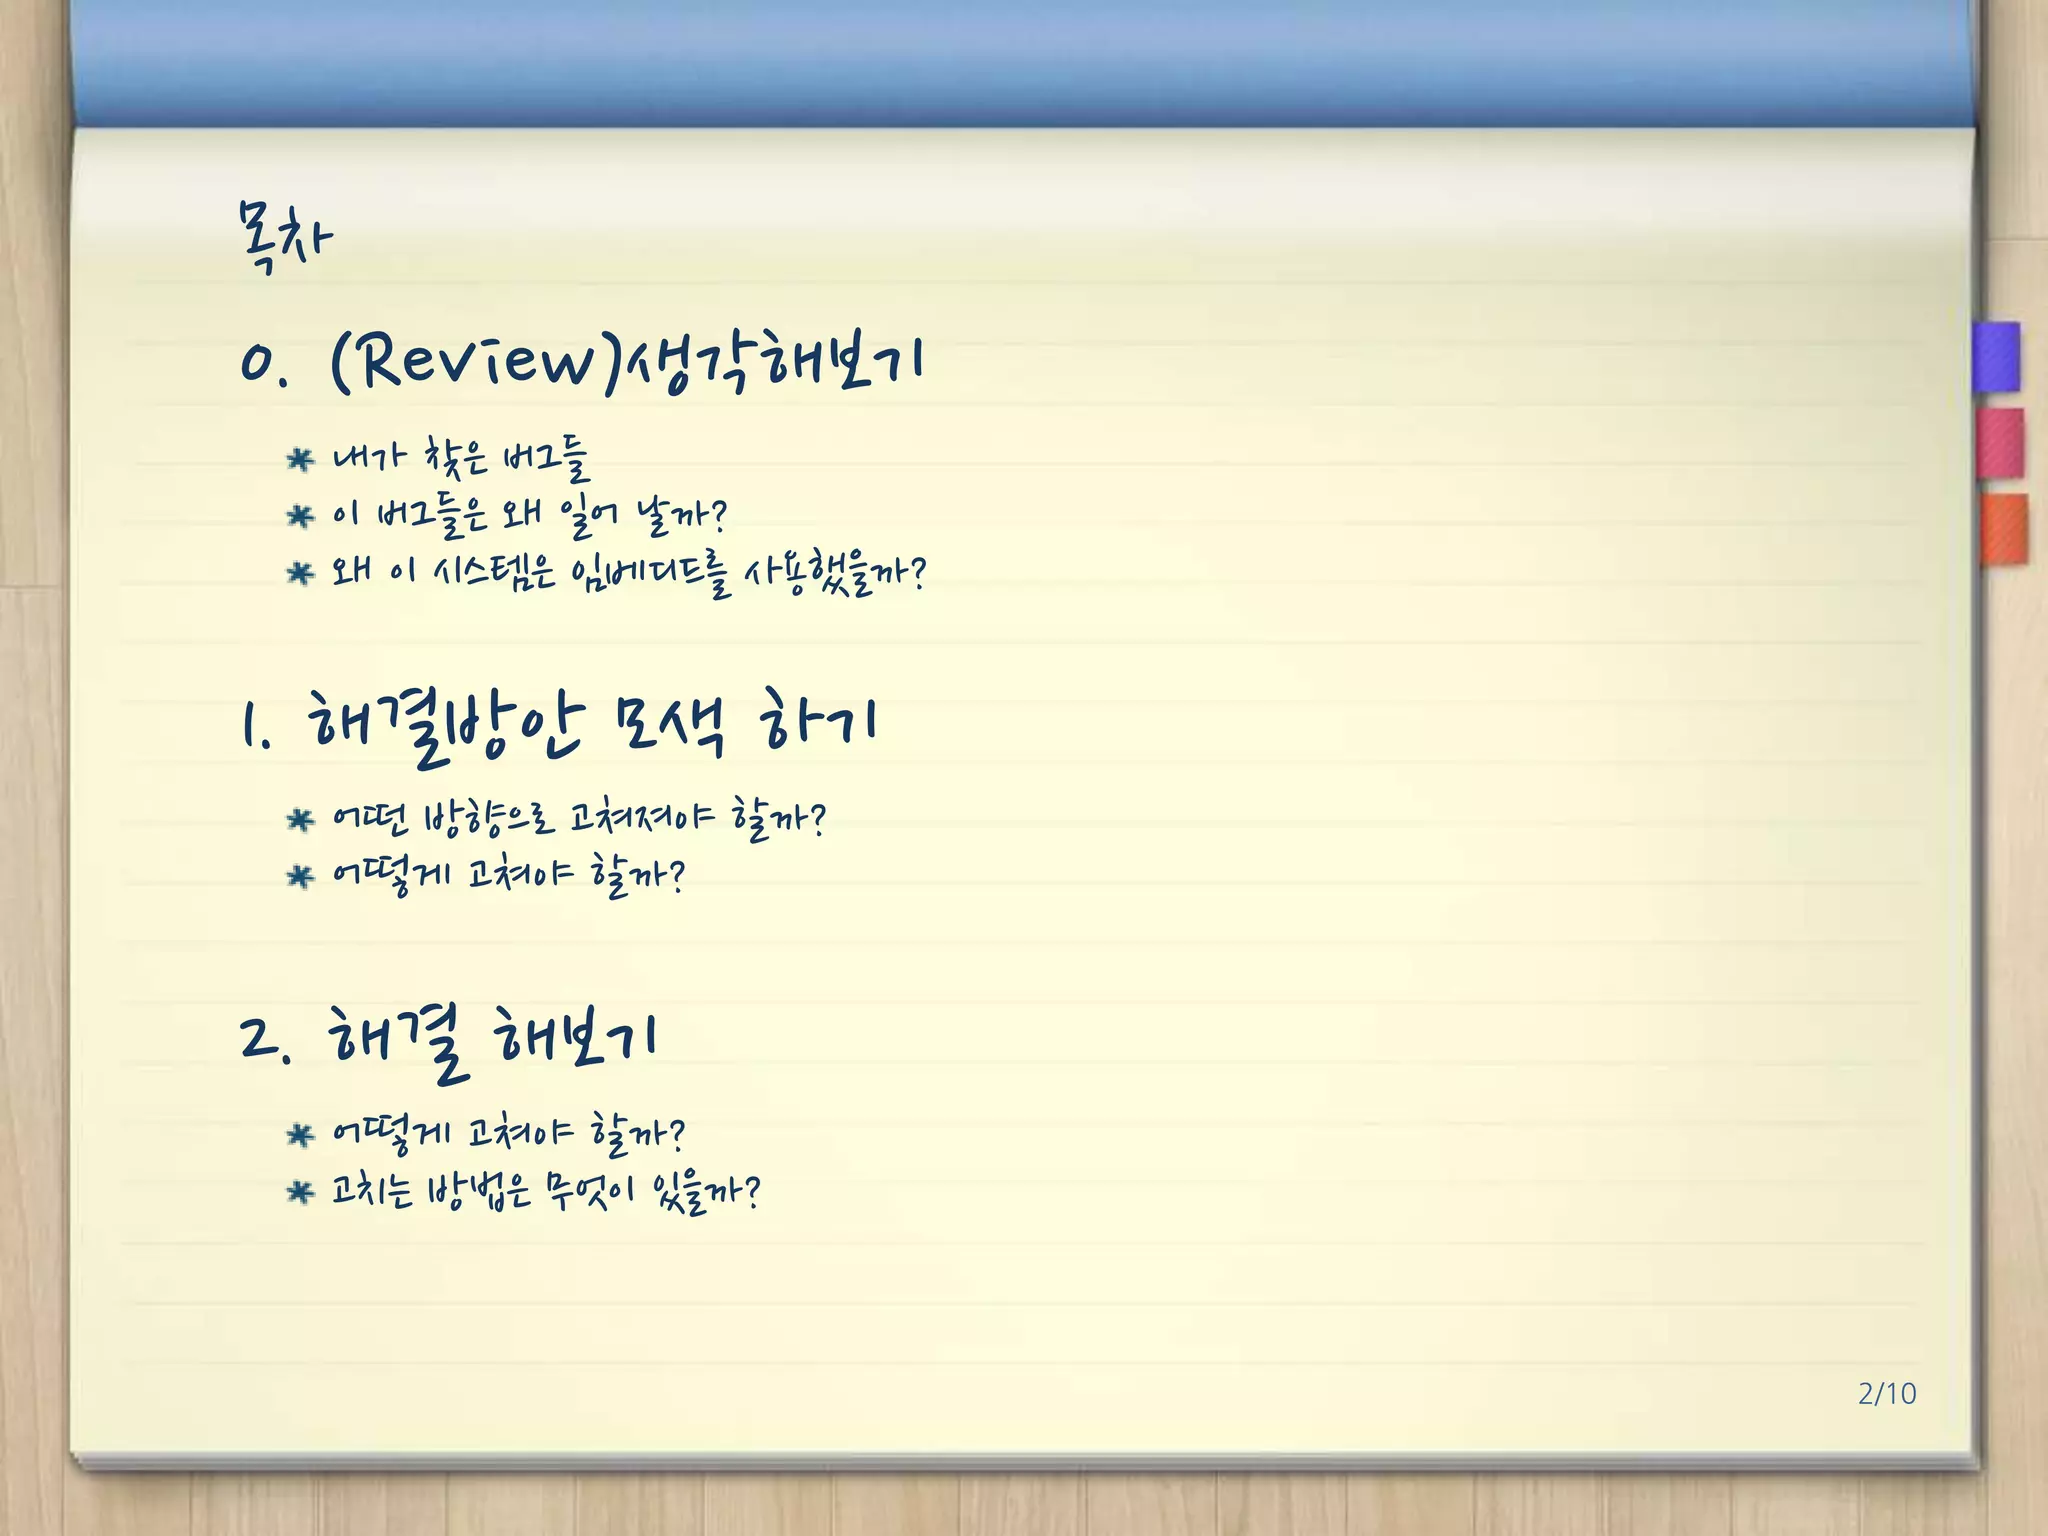 목차
0. (Review)생각해보기
* 내가 찾은 버그들
* 이 버그들은 왜 일어 날까?
* 왜 이 시스템은 임베디드를 사용했을까?
1. 해결방안 모색 하기
* 어떤 방향으로 고쳐져야 할까?
* 어떻게 고쳐야 할까?
2. 해결 해보기
* 어떻게 고쳐야 할까?
* 고치는 방법은 무엇이 있을까?
2/10